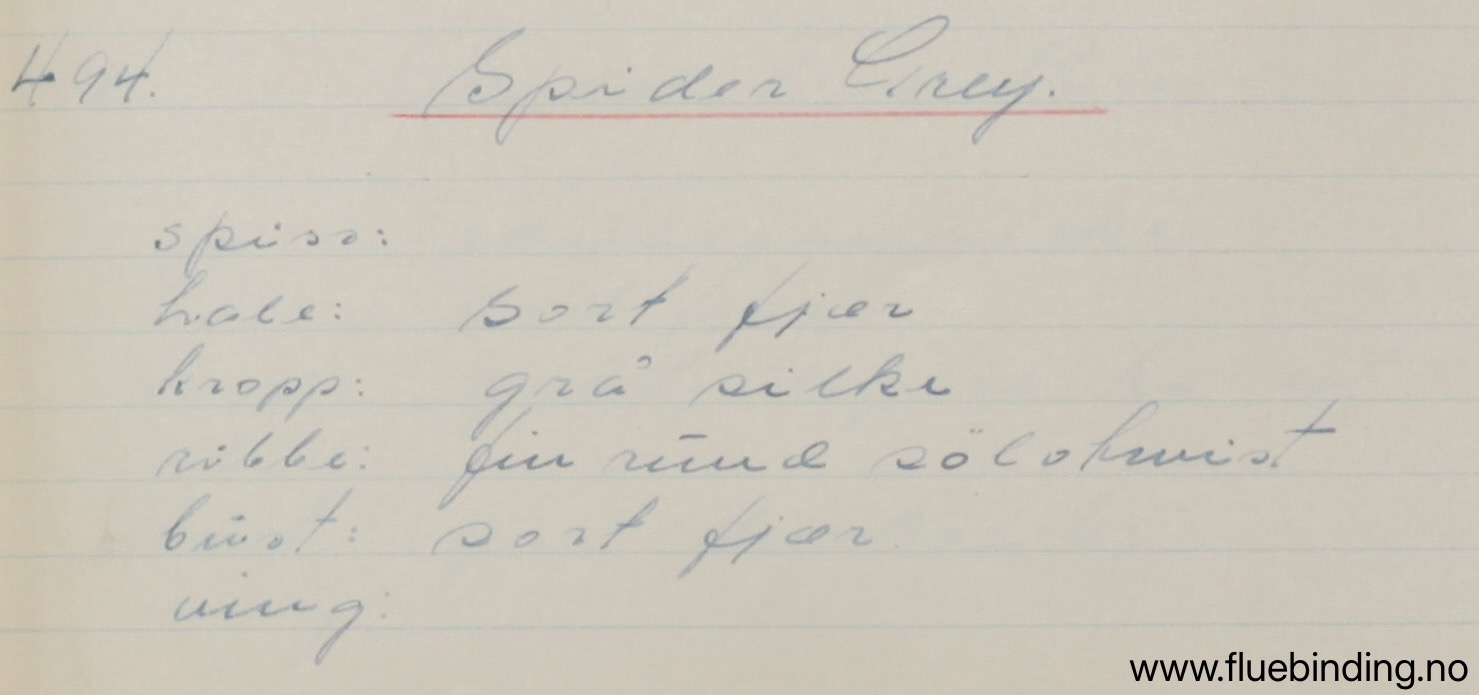 494. Spider Grey.
spiss:
hale: sort fjær
kropp: grå silke
ribbe: fin rund sölvtwist
bust: sort fjær
ving:
www.fluebinding.no